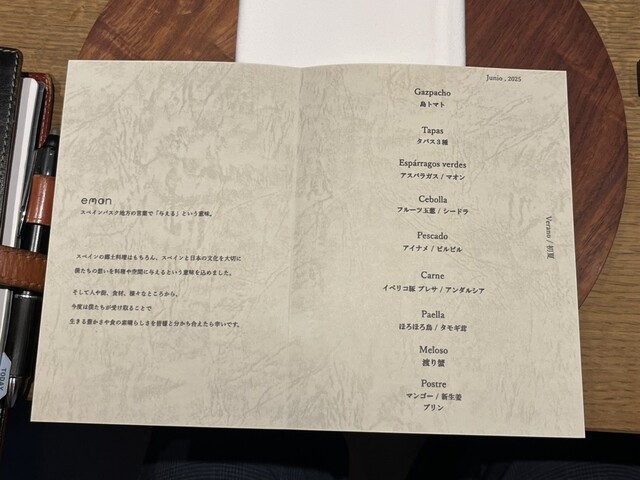 eman
スペインバスク地方の言葉で「与える」という意味。
スペインの郷土料理はもちろん、スペインと日本の文化を大切に
僕たちの想いを料理や空間に与えるという意味を込めました。
そして人や街、食材、様々なところから、
今度は僕たちが受け取ることで
生きる豊かさや食の素晴らしさを皆様と分かち合えたら幸いです。
Junio , 2025
Gazpacho
島トマト
Tapas
タパス3種
Espárragos verdes
アスパラガス / マオン
Cebolla
フルーツ玉葱 / シードラ
Pescado
アイナメ / ピルピル
Carne
イベリコ豚 プレサ / アンダルシア
Paella
ほろほろ鳥 / タモギ茸
Meloso
渡り蟹
Postre
マンゴー / 新生姜
プリン
Verano / 初夏
TODAY